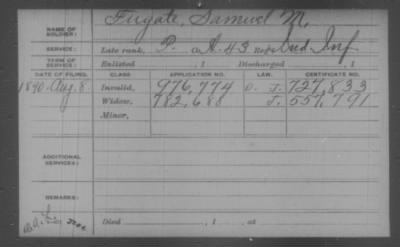 NAME OF SOLDIER: Fugate, Samuel M.
SERVICE: Late rank, P. Co. A. 43 Reg't Ind Inf
TERM OF SERVICE: Enlisted , 1 Discharged , 1
DATE OF FILING. CLASS APPLICATION NO. LAW. CERTIFICATE NO.
1890 Aug. 8. Invalid, 976,774 J. 727,833
Widow, 782,688 J. 557,791
Minor,
ADDITIONAL SERVICES:
REMARKS:
Died , 1 , at